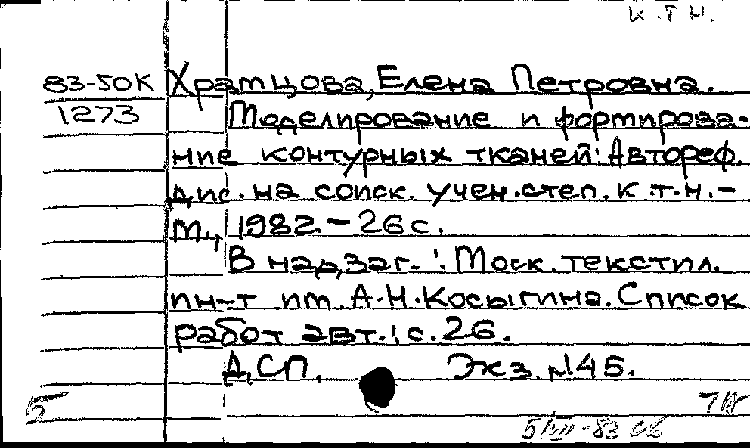 К.Т.Н.
83-50К Храмцова, Елена Петровна.
1273 Моделирование и формирова-
ние контурных тканей: Автореф.
дис. на соиск. учен. степ. к.т.н. -
М., 1982. - 26 с.
В надзаг.: Моск. текстил.
ин-т им. А.Н. Косыгина. Список
работ авт.: с. 26.
ДСП. Экз. №145.
5